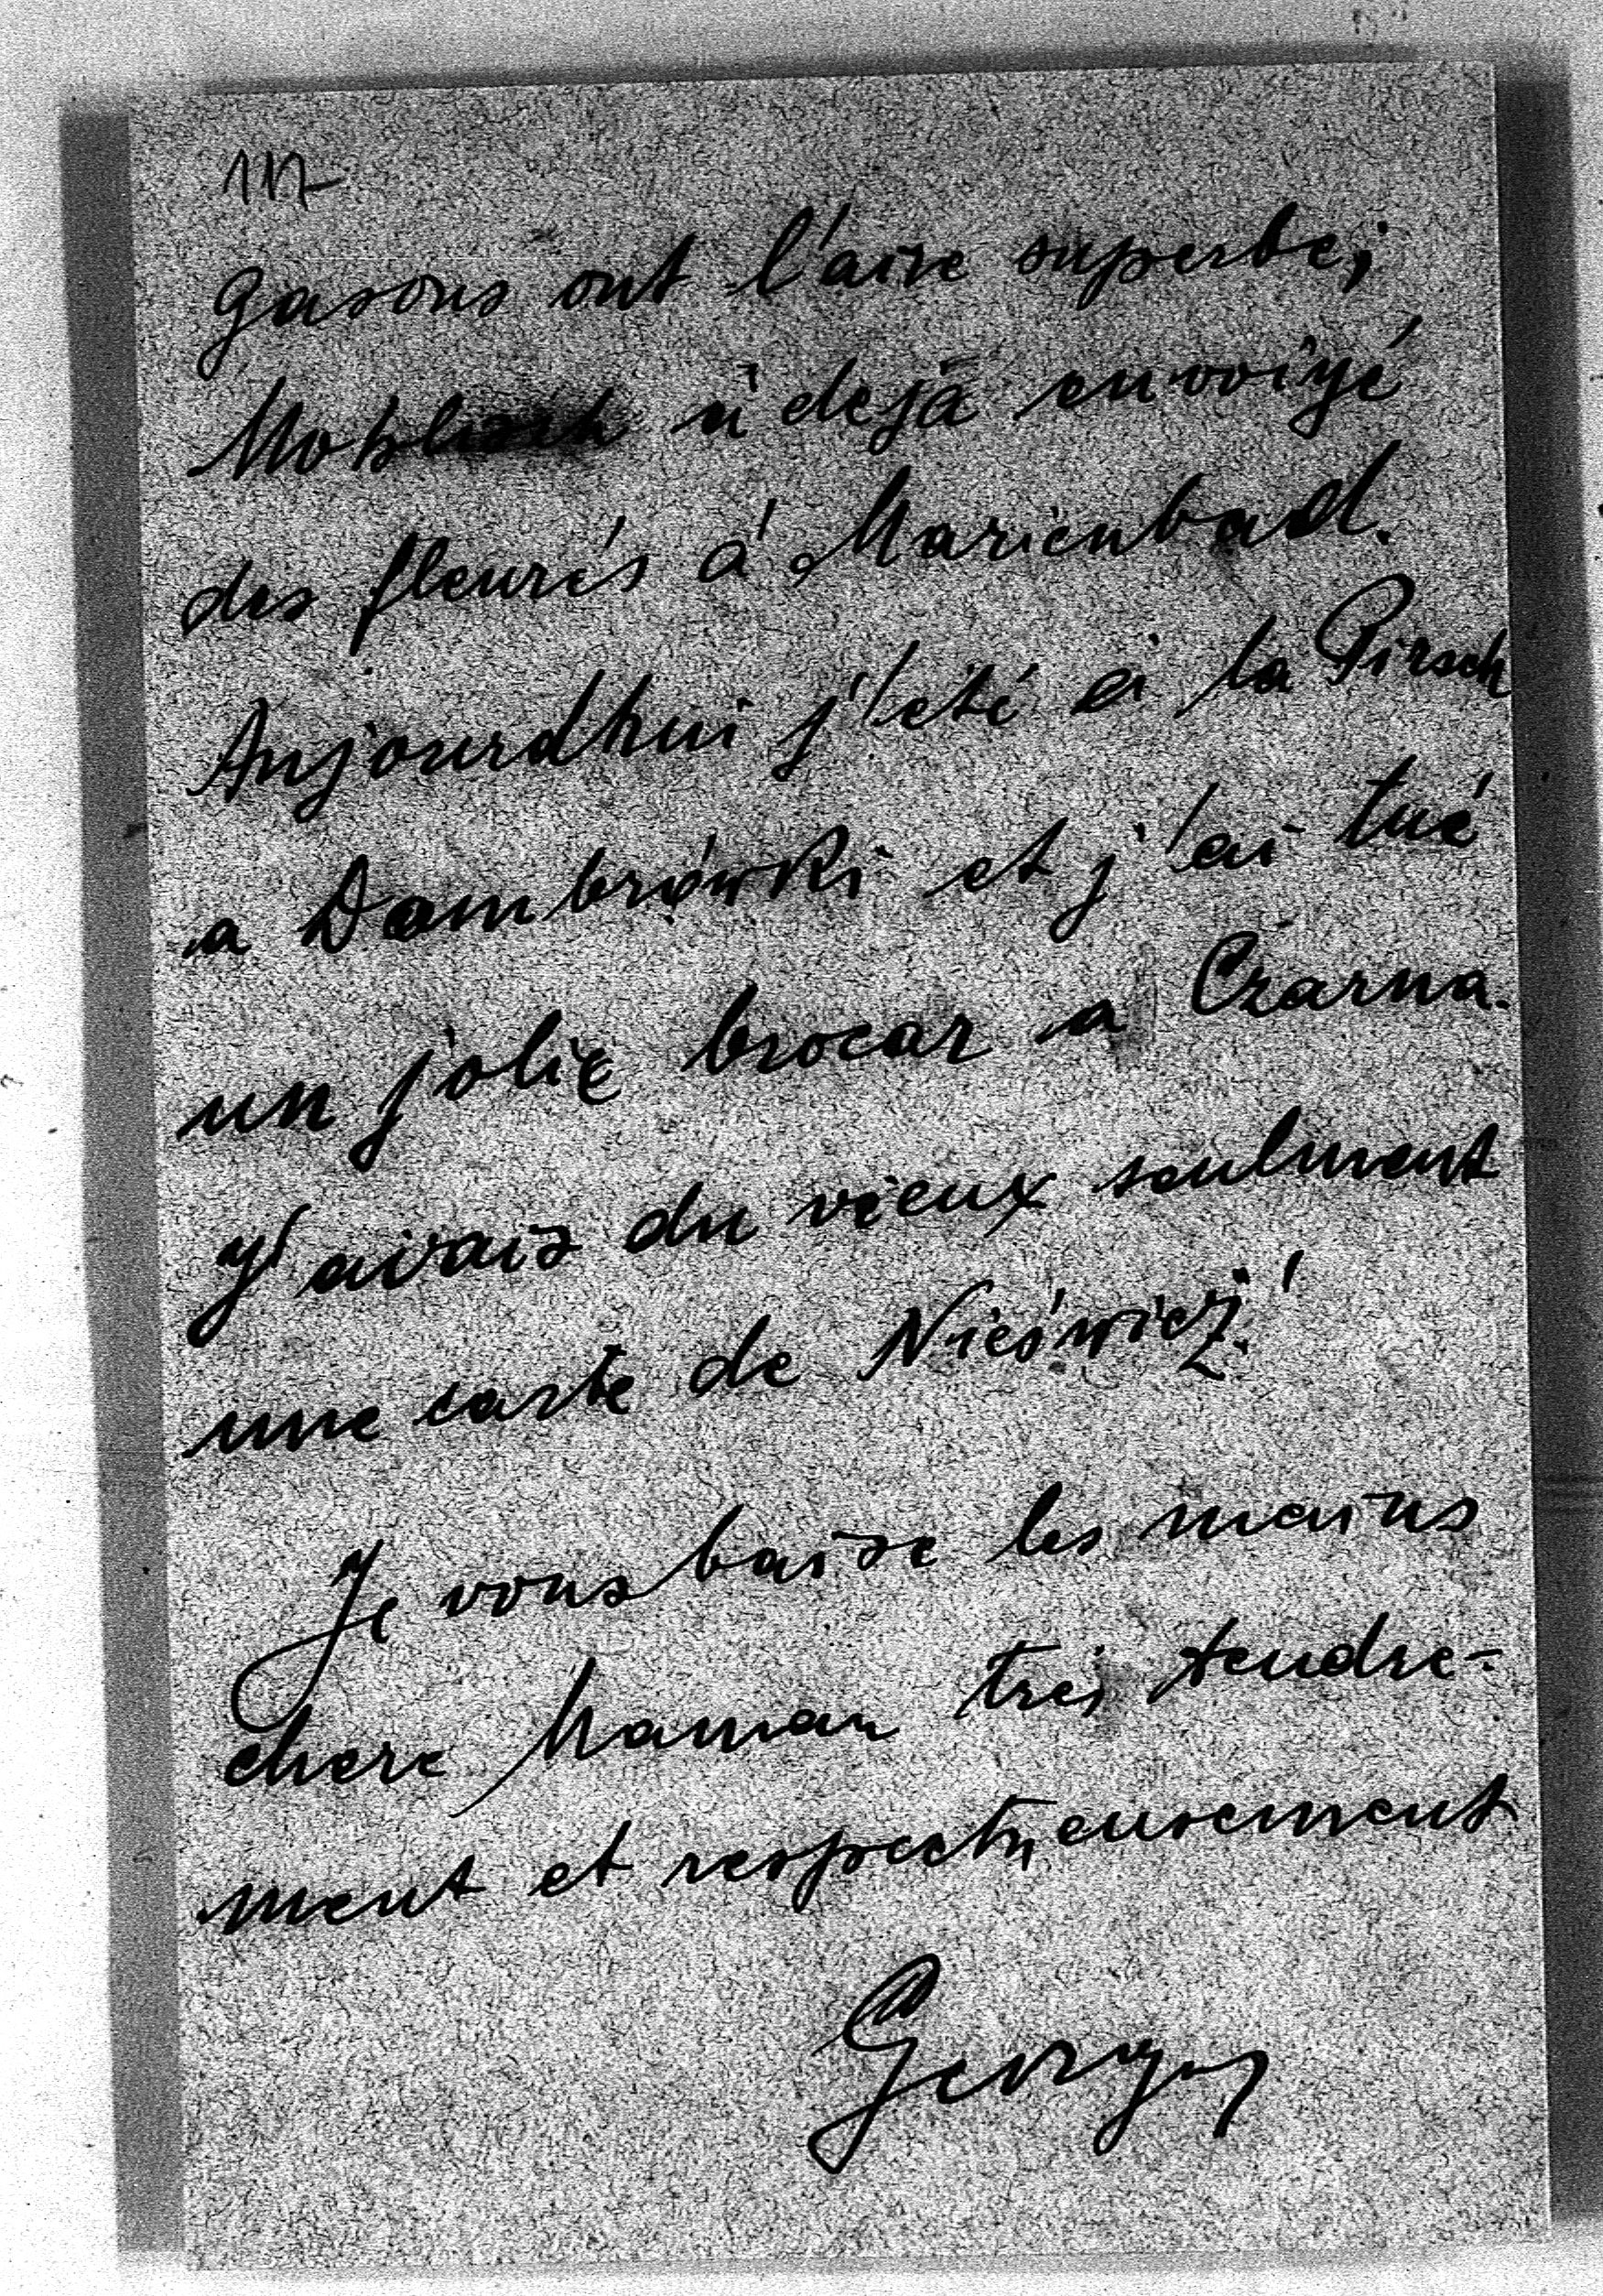 117
gasons ont l'aire superbe;
a dejà envoiyé
des fleurés á Marienbad.
Aujourdhui j'eté a la Pirsch
a Dombrówki et j'ai tué
un jolie brocar a Czarna.
J'airais du vieux seulment
une carte de Nieśwież!
Je vous baise les mains
chere Maman trés tendre-
ment et respectueusement
Georges